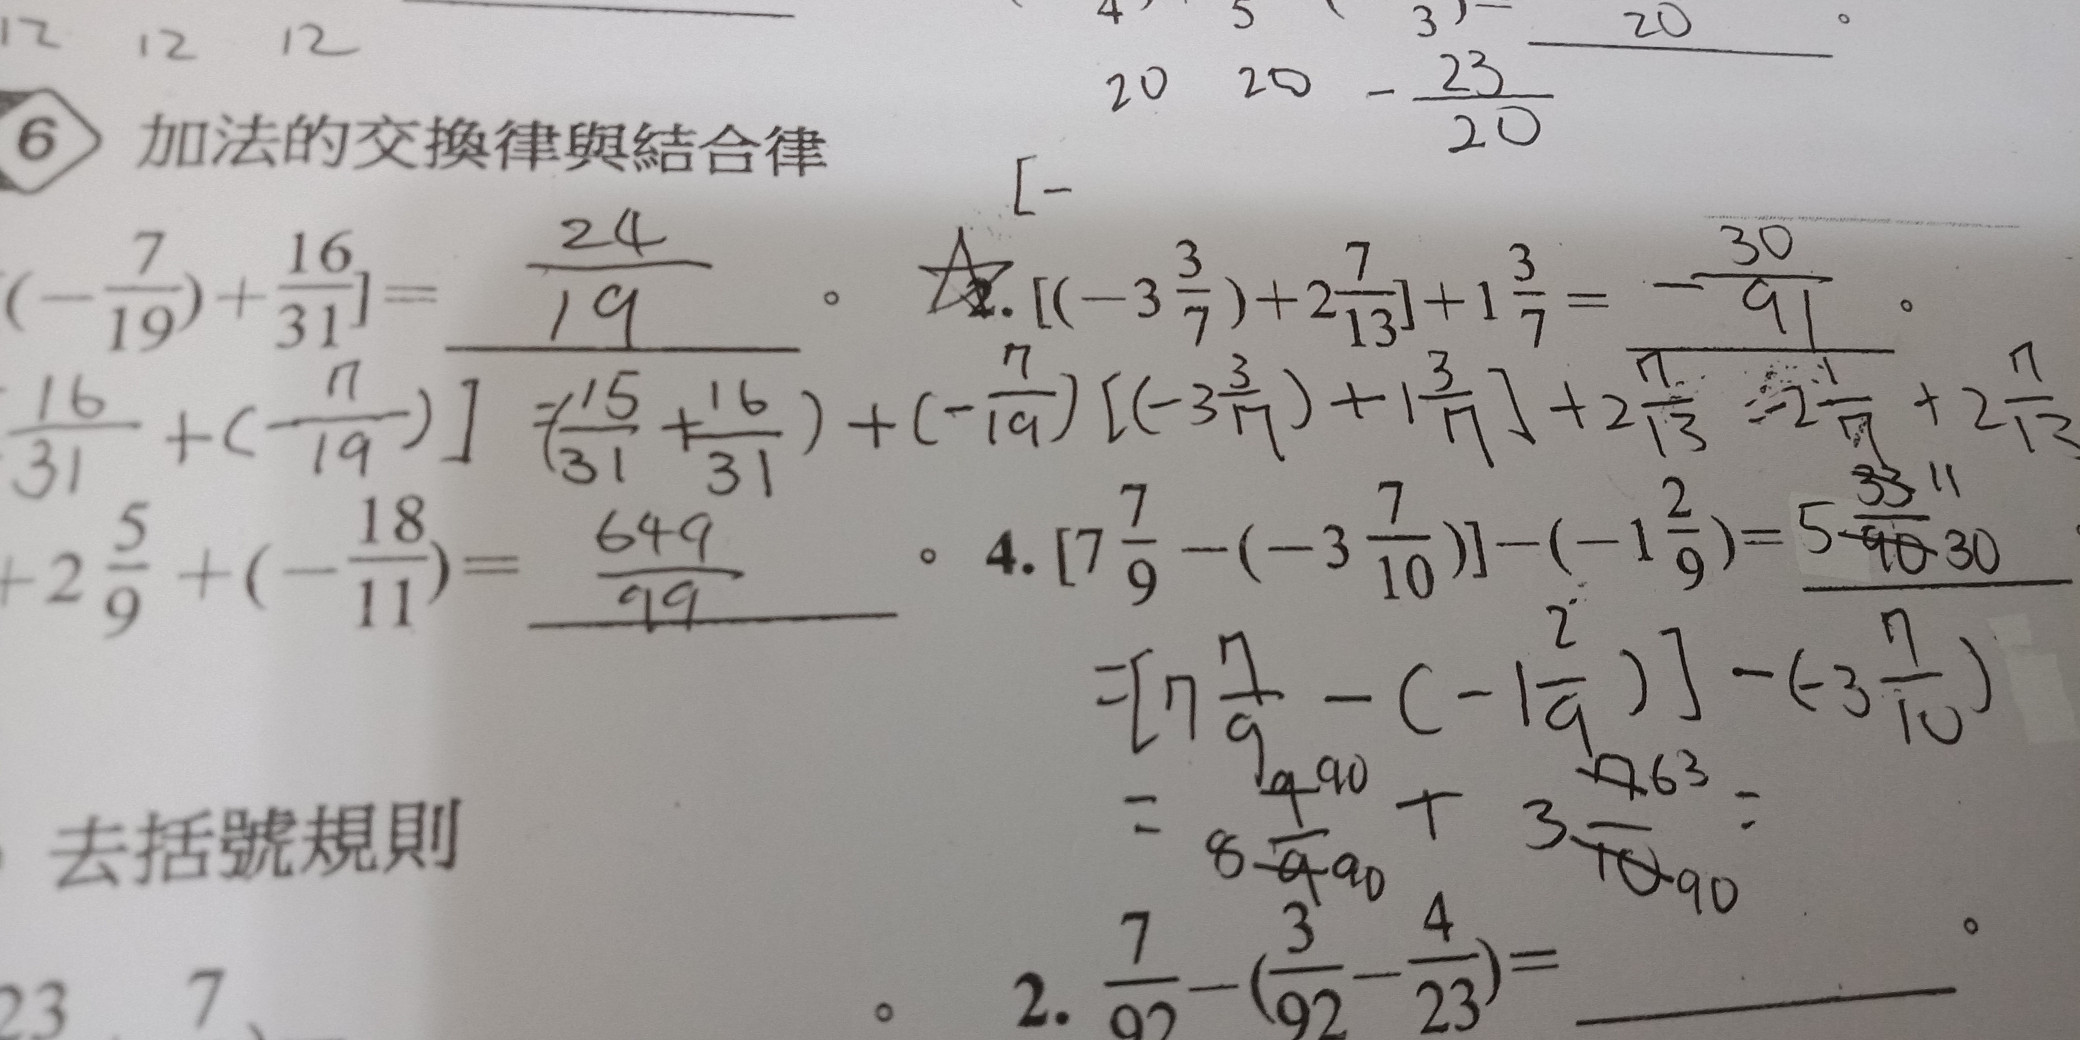 12 12 12
4 5 3)= 20 。
20 20 -23/20
6 加法的交換律與結合律
[-
(-7/19)+16/31]= 24/19 。
☆2. [(-3 3/7)+2 7/13]+1 3/7= -30/91 。
16/31 +(-7/19)] =(15/31+16/31)+(-7/19)
[(-3 3/7)+1 3/7]+2 7/13 =-2 1/7 +2 7/13
+2 5/9+(-18/11)= 649/99 。
4. [7 7/9-(-3 7/10)]-(-1 2/9)= 5 33/90 11 30
=[7 7/9-(-1 2/9)]-(-3 7/10)
= 8 9/9 90 90 + 3 7/10 63 90 =
去括號規則
23 7 。
2. 7/92-(3/92-4/23)= 。